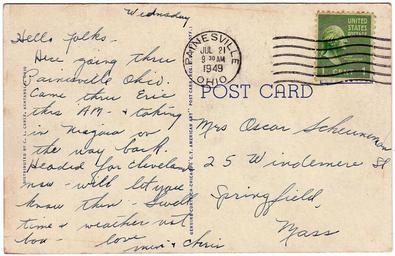 Wednesday
Hello folks -
Here going thru
Painesville Ohio.
Came thru Erie
this AM - & taking
in Niagara on
the way back.
Headed for Cleveland
now - will let you
know then - Swell
time & weather not
too -
love
& Cheri
PAINESVILLE
JUL 21
9 30 AM
1949
OHIO
UNITED STATES
POSTAGE
POST CARD
Mrs Oscar Scheunemann
25 Windemere St
Springfield,
Mass